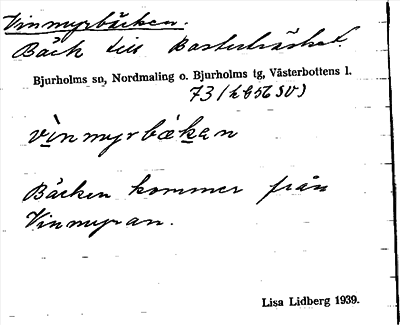 Vinmyrbäcken.
Bäck till Bastuträsket.
Bjurholms sn, Nordmaling o. Bjurholms tg, Västerbottens l.
vinmyrbækan
Bäcken kommer från
Vinmyran.
Lisa Lidberg 1939.